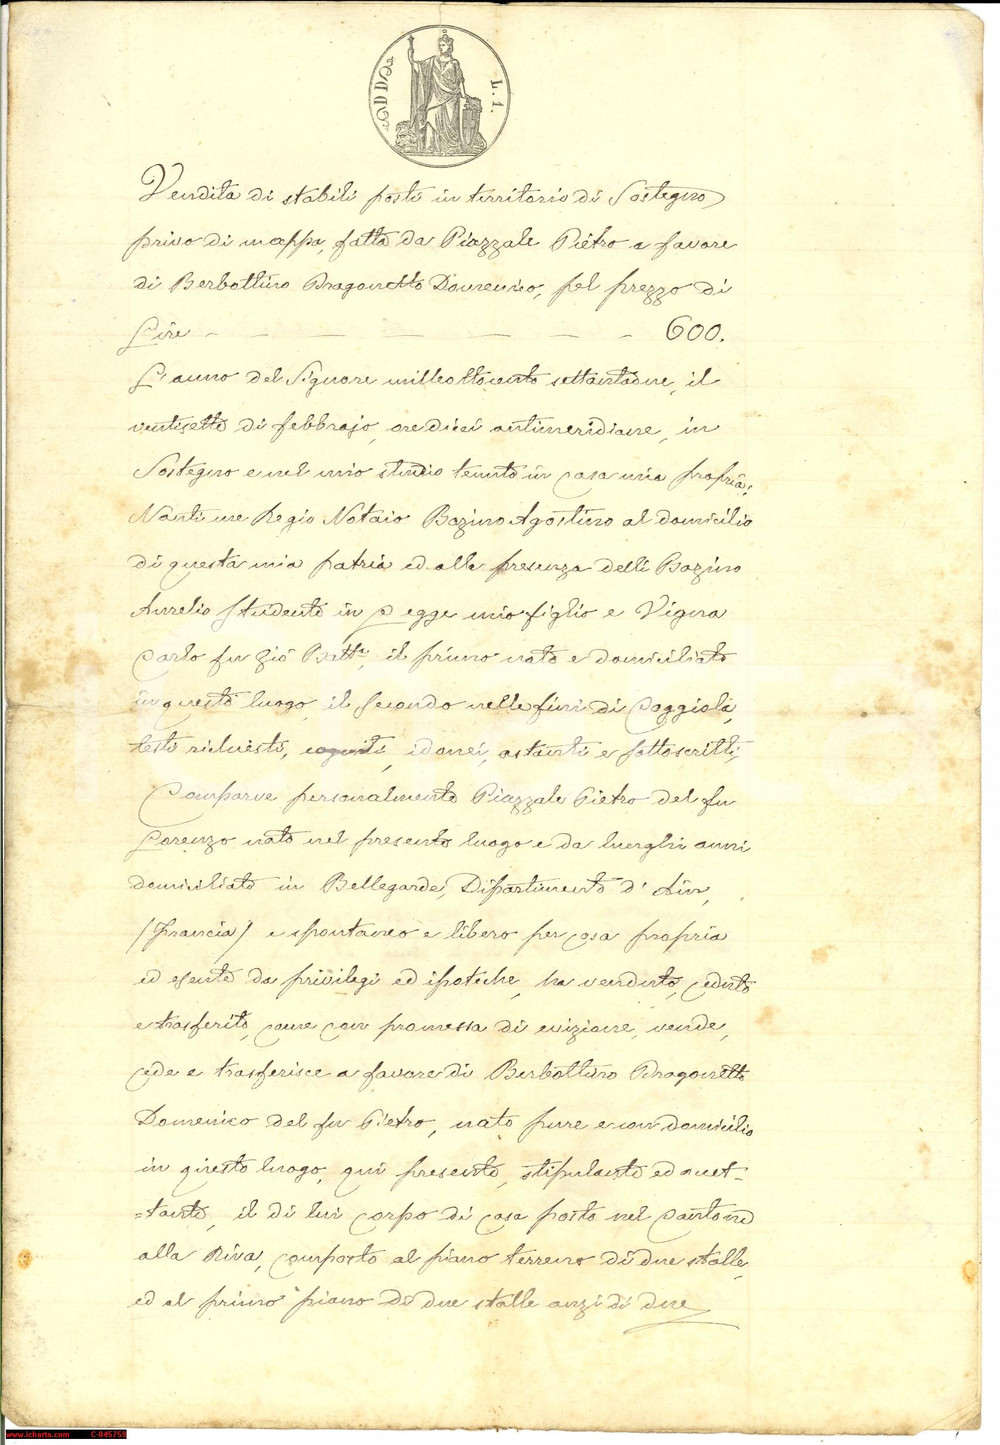 DDO L. 1.
Vendita di stabili posti in territorio di Sostegno
privo di mappa, fatta da Piazzale Pietro a favore
di Berbottino Dragonetto Domenico, pel prezzo di
Lire - - - - - - - 600.
L'anno del Signore milleottocento settantadue, il
ventisette di febbrajo, ore dieci antimeridiane, in
Sostegno e nel mio studio tenuto in casa mia propria.
Nanti me Regio Notaio Bozino Agostino al domicilio
di questa mia patria ed alla presenza delli Bozino
Aurelio Studente in Legge mio figlio e Vigna
Carlo fu Gio Batta, il primo nato e domiciliato
in questo luogo, il secondo nelle fini di Coggiola,
testi richiesti, cogniti, idonei, astanti e sottoscritti,
Comparve personalmente Piazzale Pietro del fu
Lorenzo nato nel presente luogo e da lunghi anni
domiciliato in Bellegarde, Dipartimento d'Ain,
(Francia) e spontaneo e libero per cosa propria
ed esente da privilegi ed ipoteche, ha venduto, ceduto
e trasferito, come con promessa di evizione, vende,
cede e trasferisce a favore di Berbottino Dragonetto
Domenico del fu Pietro, nato pure e con domicilio
in questo luogo, qui presente, stipulante ed accet-
=tante, il di lui corpo di casa posto nel Cantone
alla Riva, composto al piano terreno di due stalle,
ed al primo piano di due stalle anzi di due
www.icharta.com C-045759